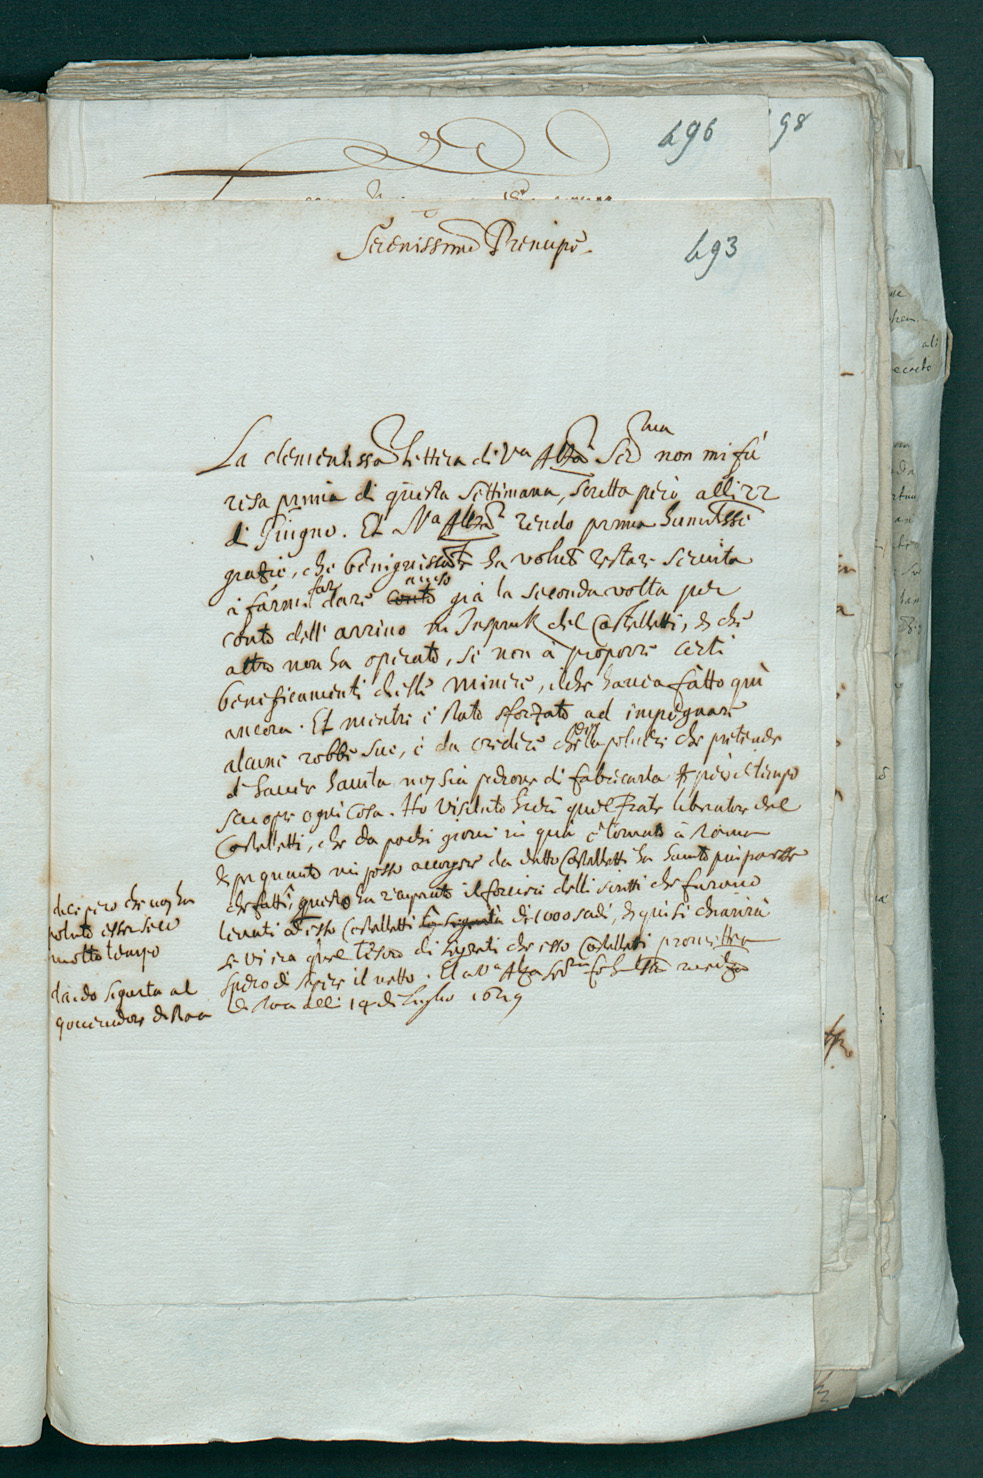 496
98
Serenissimo Prencipe.
493
La clementissa lettera di Va Altza Serma non mi fù
resa prima di questa settimana, scritta però alli 22
di Giugno. Et Va Altza rendo prima humilisse
grazie, che benignissate ha voluto restare servita
à farmi far dare conto auiso già la seconda volta per
conto dell' arriuo in Inspruk del Castelletti, et che
altro non ha operato, se non à proporre certi
beneficamenti delle minere, il che hauea fatto quì
ancora. Et mentre è stato sforzato ad impegnare
alcune robbe sue, è da credere che la poluere che pretende
d' hauer hauuta non sia per fabricarla però il tempo
scuopre ogni cosa. Ho visitato hieri quel frate liberatore del
Castelletti, che da pochi giorni in quà è tornato à Roma
et per quanto mi posso accorgere da detto Castelletti ha hauuto
che fatti, questo ha ricuperato il forcieri delli scritti che furono
leuati ad esso Castelletti di 1000 scudi, et qui si chiarirà
se vi era quel tesoro di segreti che esso Castelletti prometteua
spero di sapere il netto. Et a Va Altza Serma fo
di Roma alli 14 di Luglio 1649
dice però che non ha
voluto esser seco
molto tempo
dando sigurta al
gouernatore di Roma